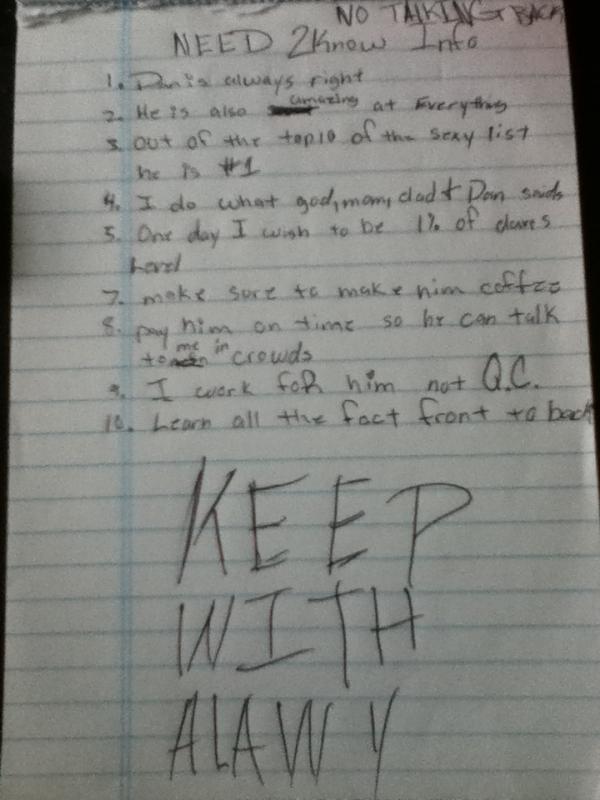 NO TALKING BACK
NEED 2Know Info
1. Dan is always right
2. He is also amazing at Everything
3. out of the top10 of the sexy list
he is #1
4. I do what god, mom, dad + Dan saids
5. One day I wish to be 1% of
7. make sure to make him coffee
8. pay him on time so he can talk
to me in crowds
9. I work for him not Q.C.
10. Learn all the fact front to back
KEEP
WITH
ALAWY